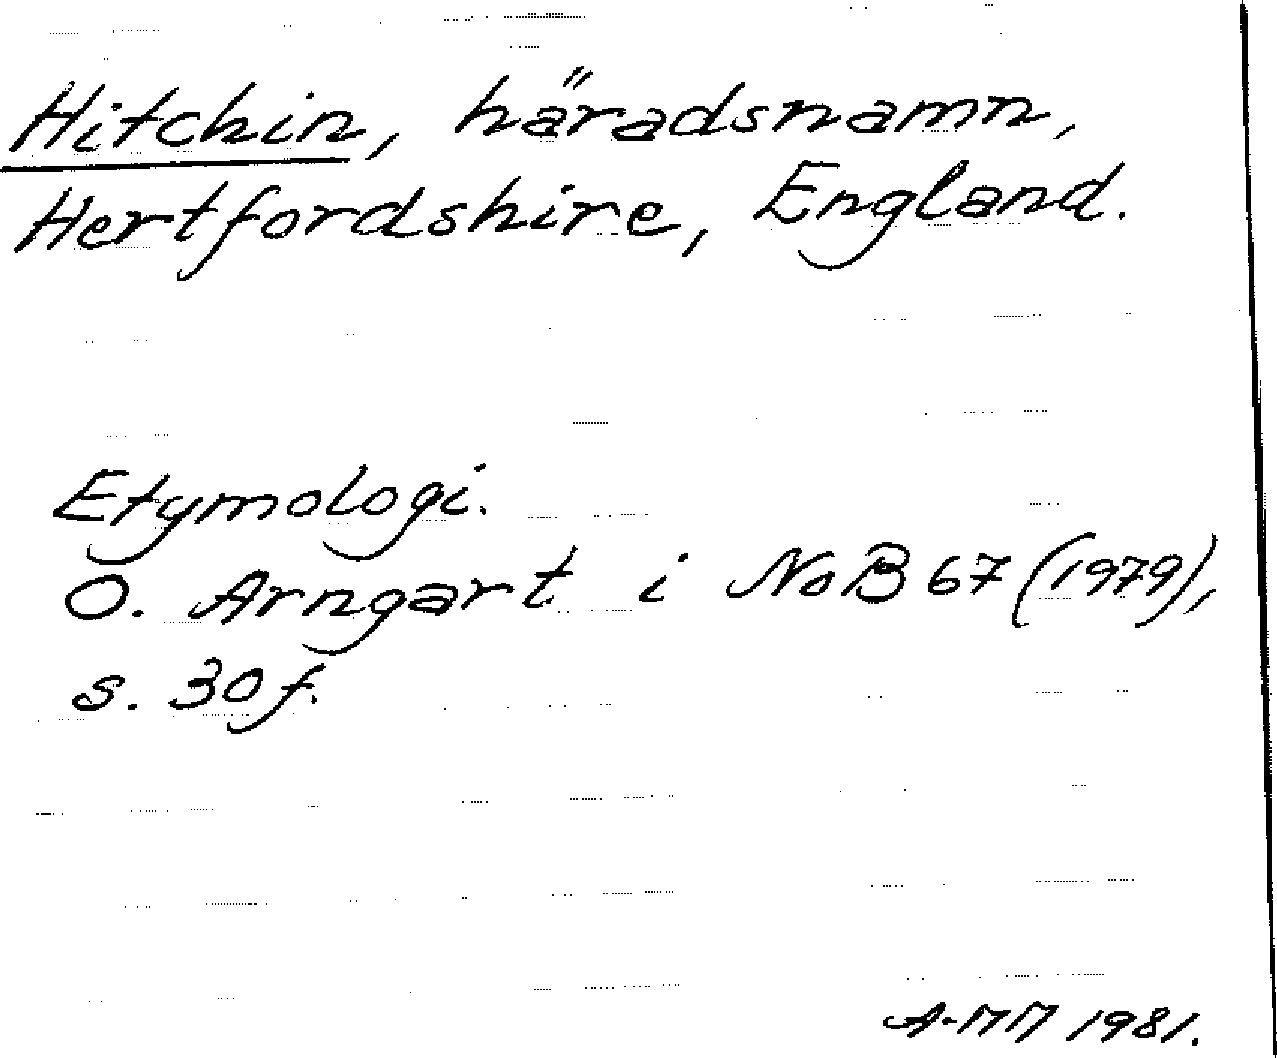 Hitchin, häradsnamn,
Hertfordshire, England.
Etymologi.
O. Arngart i NoB 67 (1979),
s. 30 f.
A-MM 1981.